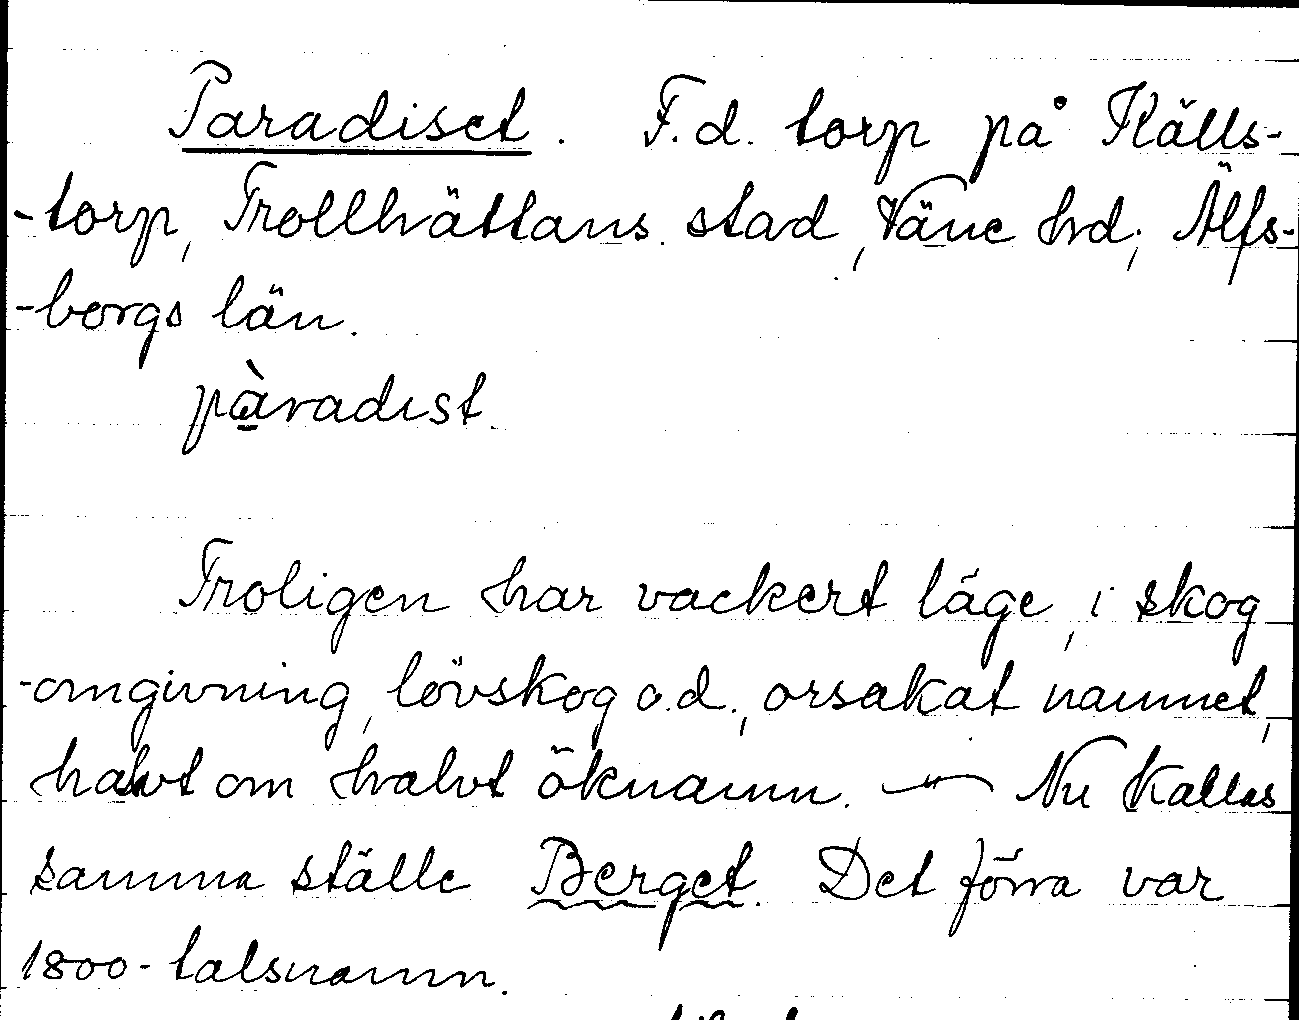 Paradiset. F.d. torp på Källs-
-torp, Trollhättans stad, Väne hd, Älfs-
-borgs län.
pàradıst.
Troligen har vackert läge, i skog
-omgivning, lövskog o.d., orsakat namnet,
halvt om halvt öknamn. — Nu kallas
samma ställe Berget. Det förra var
1800-talsnamn.